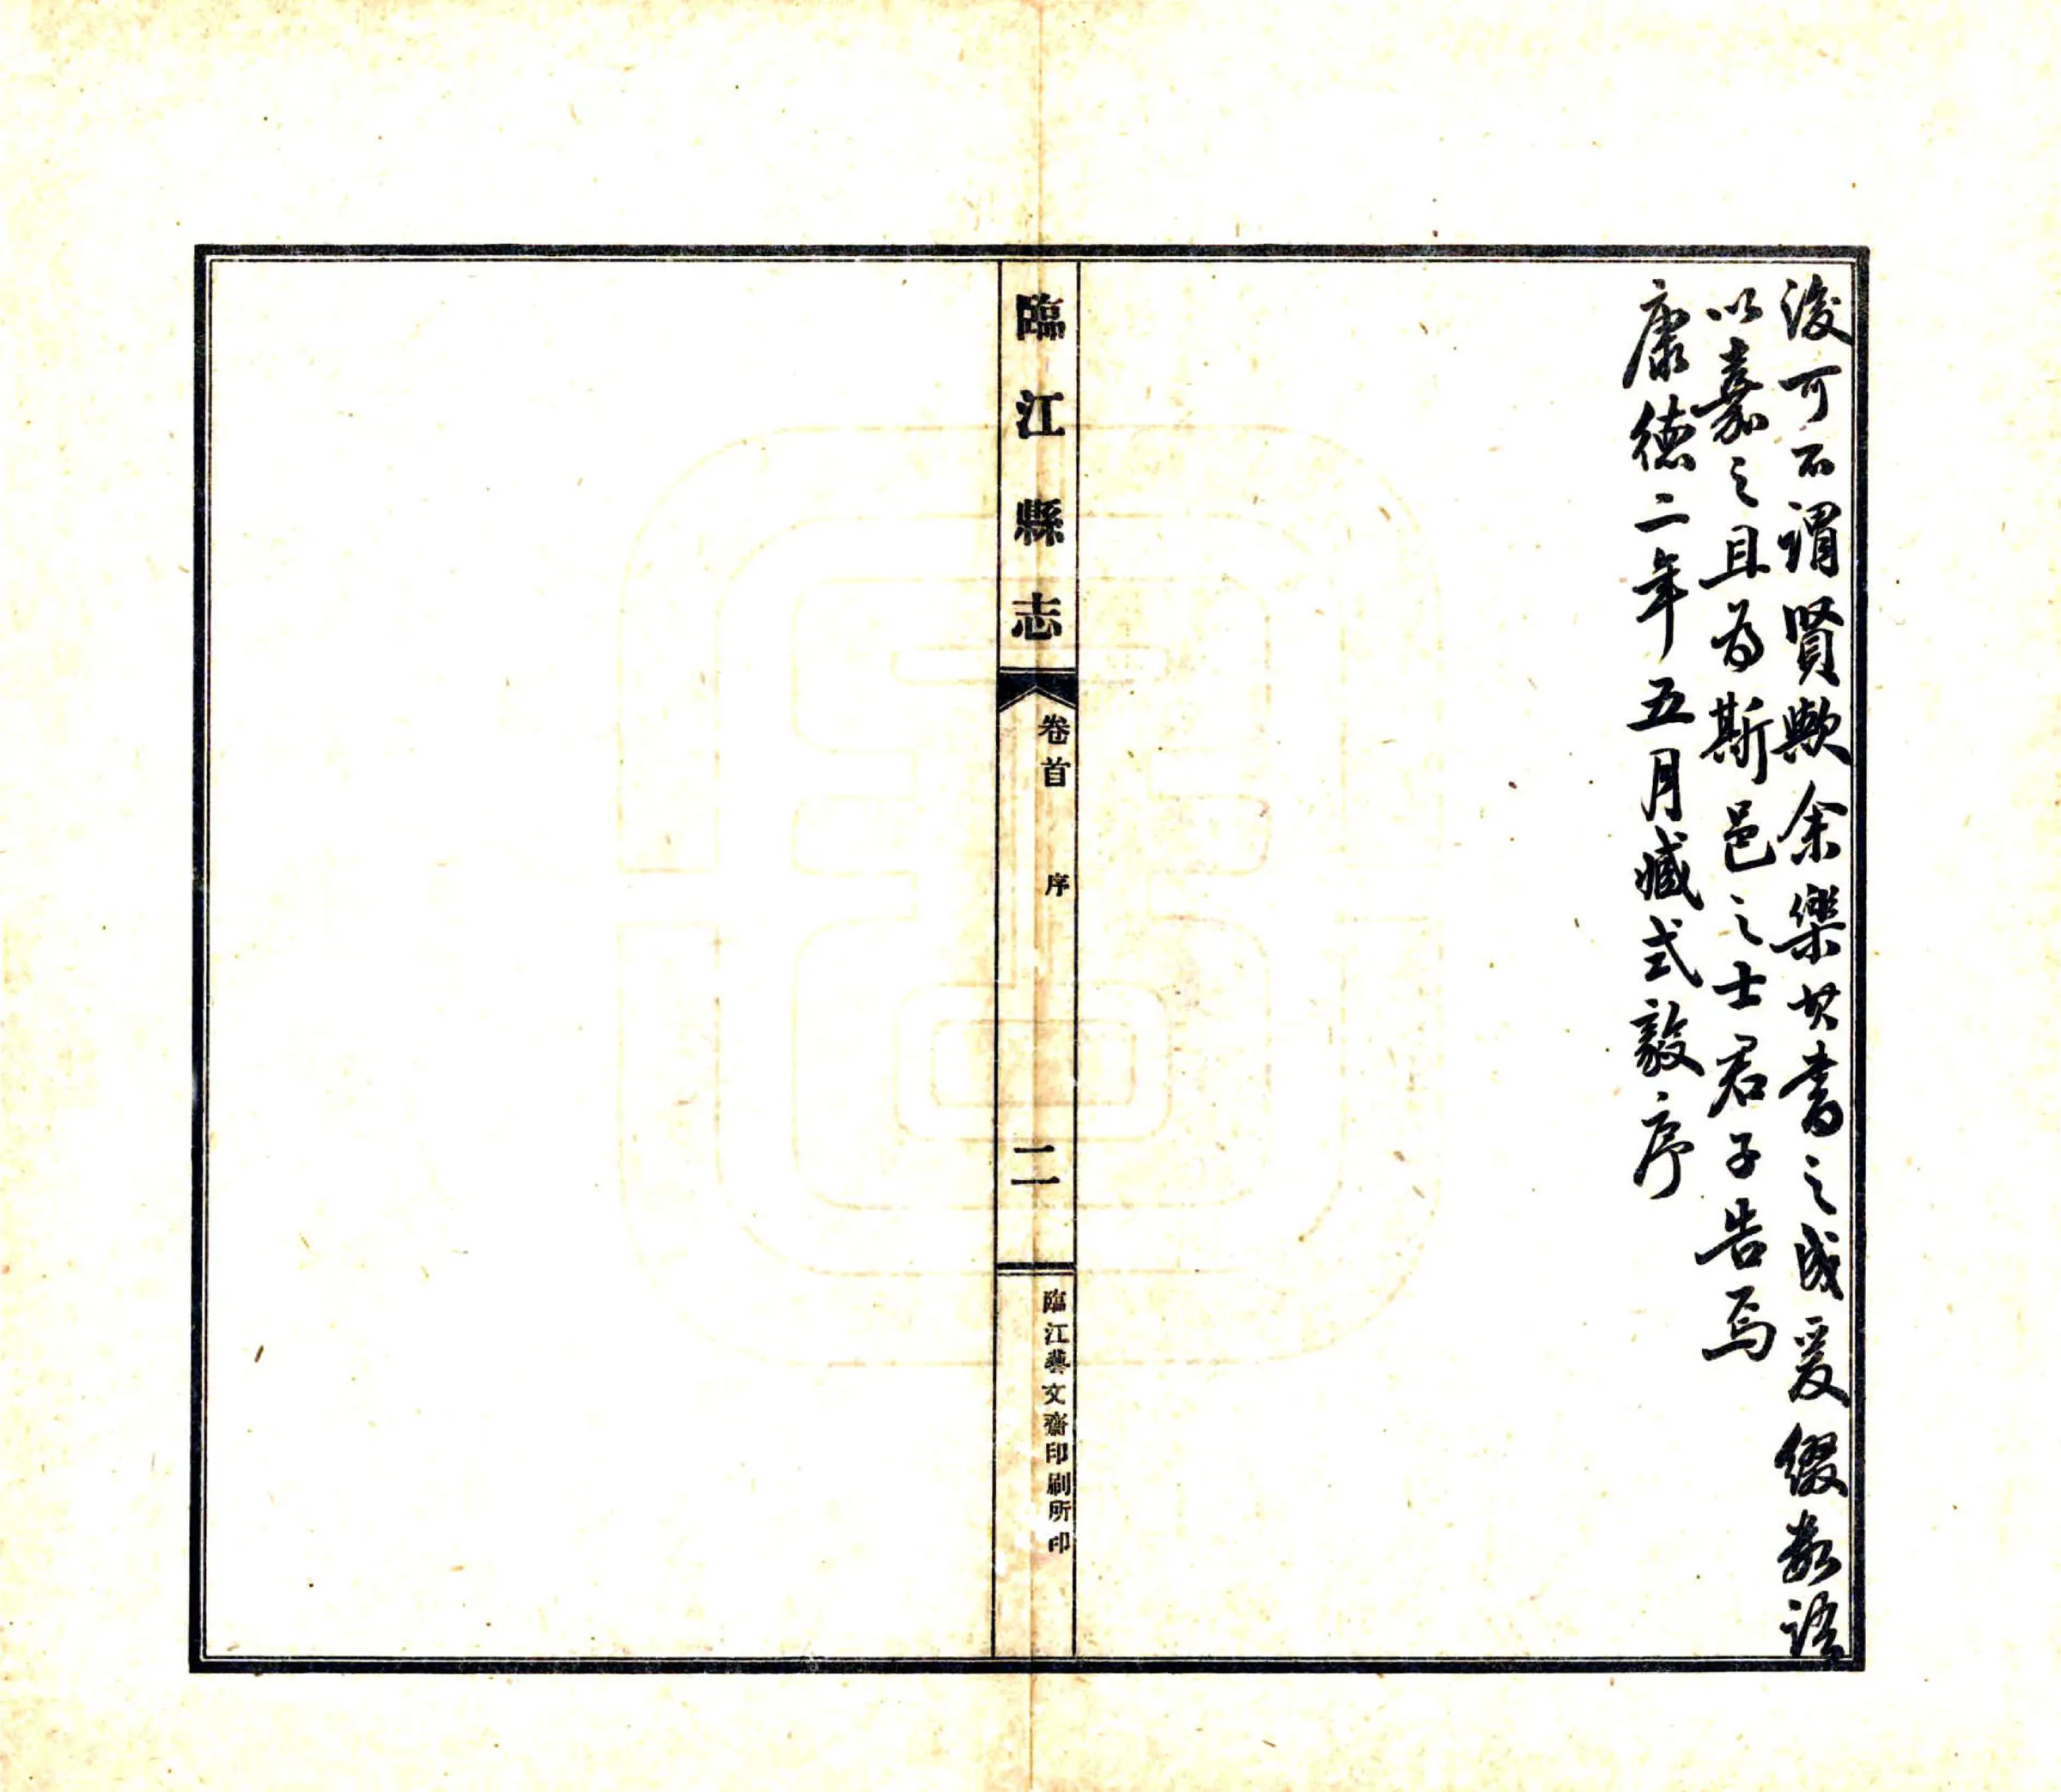 後可不謂賢歟余樂其書之成爰綴數語
以嘉之且為斯邑之士君子告焉
康德二年五月臧式毅序
臨江縣志
卷首 序
二
臨江藝文齋印刷所印